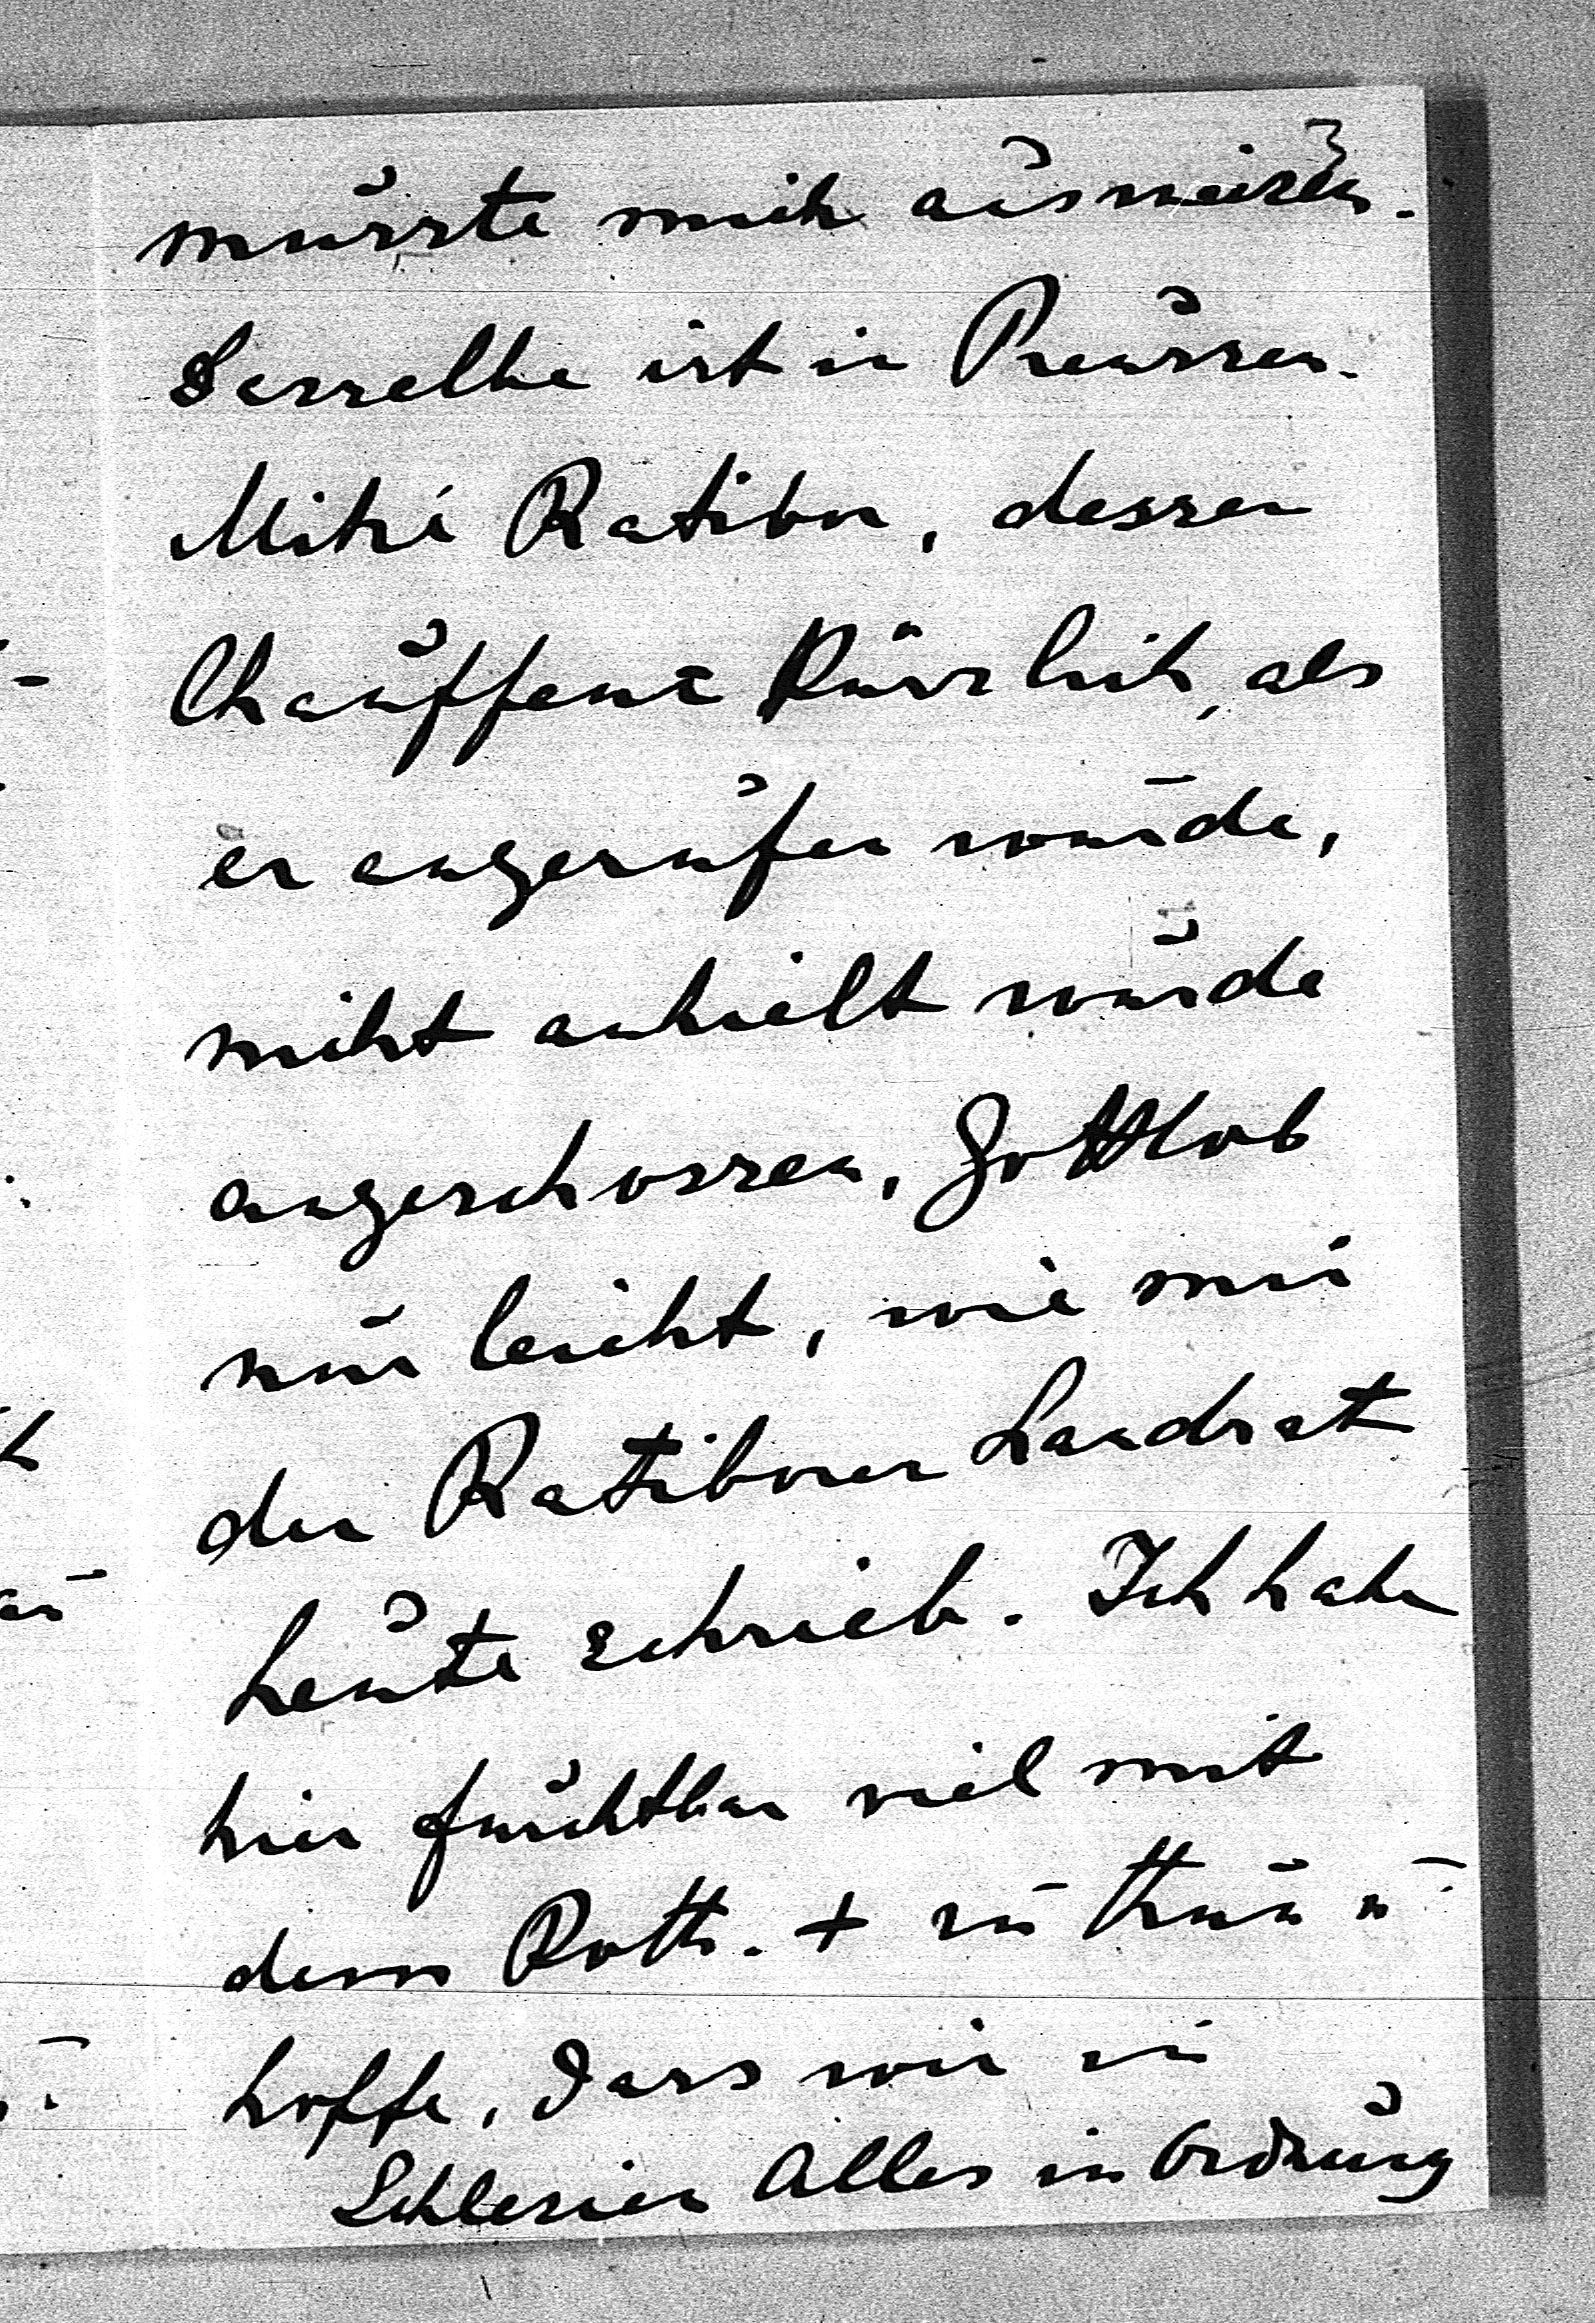 3
musste mich ausweisen.
Dasselbe ist in Preussen.
Ratibor, dessen
Chauffeur kürzlich, als
er angerufen wurde,
nicht anhielt wurde
angeschossen, Gottlob
nur leicht, wie mir
der Ratiborer Landrat
heute schrieb. Ich habe
hier furchtbar viel mit
dem Roth. + zu thun u.
hoffe, dass wir in
Schlesien Alles in Ordnung